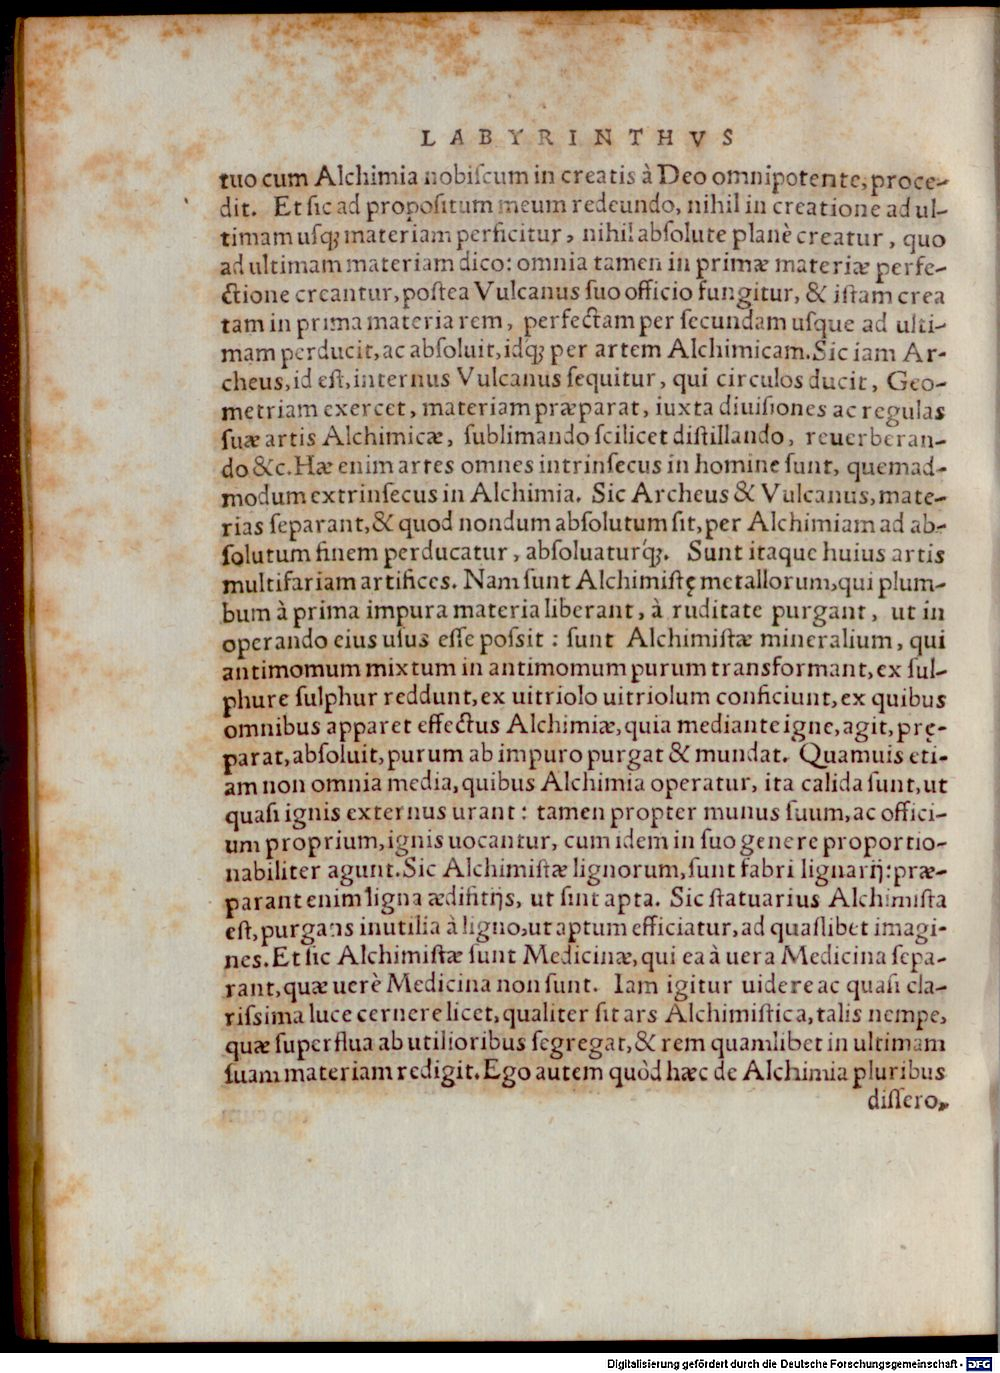 LABYRINTHVS
tuo cum Alchimia nobiſcum in creatis à Deo omnipotente, proce-
dit. Et ſic ad propoſitum meum redeundo, nihil in creatione ad ul-
timam uſq; materiam perficitur, nihil abſolute planè creatur, quo
ad ultimam materiam dico: omnia tamen in primæ materiæ perfe-
ctione creantur, poſtea Vulcanus ſuo officio fungitur, & iſtam crea
tam in prima materia rem, perfectam per ſecundam uſque ad ulti-
mam perducit, ac abſoluit, idq́; per artem Alchimicam. Sic iam Ar-
cheus, id eſt, internus Vulcanus ſequitur, qui circulos ducit, Geo-
metriam exercet, materiam præparat, iuxta diuiſiones ac regulas
ſuæ artis Alchimicæ, ſublimando ſcilicet diſtillando, reuerberan-
do &c. Hæ enim artes omnes intrinſecus in homine ſunt, quemad-
modum extrinſecus in Alchimia. Sic Archeus & Vulcanus, mate-
rias ſeparant, & quod nondum abſolutum ſit, per Alchimiam ad ab-
ſolutum finem perducatur, abſoluaturq́;. Sunt itaque huius artis
multifariam artifices. Nam ſunt Alchimiſtę metallorum, qui plum-
bum à prima impura materia liberant, à ruditate purgant, ut in
operando eius uſus eſſe poſsit: ſunt Alchimiſtæ mineralium, qui
antimomum mixtum in antimomum purum transformant, ex ſul-
phure ſulphur reddunt, ex uitriolo uitriolum conficiunt, ex quibus
omnibus apparet effectus Alchimiæ, quia mediante igne, agit, prę-
parat, abſoluit, purum ab impuro purgat & mundat. Quamuis eti-
am non omnia media, quibus Alchimia operatur, ita calida ſunt, ut
quaſi ignis externus urant: tamen propter munus ſuum, ac offici-
um proprium, ignis uocantur, cum idem in ſuo genere proportio-
nabiliter agunt. Sic Alchimiſtæ lignorum, ſunt fabri lignarij: præ-
parant enim ligna ædifitijs, ut ſint apta. Sic ſtatuarius Alchimiſta
eſt, purgans inutilia à ligno, ut aptum efficiatur, ad quaſlibet imagi-
nes. Et ſic Alchimiſtæ ſunt Medicinæ, qui ea à uera Medicina ſepa-
rant, quæ uerè Medicina non ſunt. Iam igitur uidere ac quaſi cla-
riſsima luce cernere licet, qualiter ſit ars Alchimiſtica, talis nempe,
quæ ſuperflua ab utilioribus ſegregat, & rem quamlibet in ultimam
ſuam materiam redigit. Ego autem quòd hæc de Alchimia pluribus
diſſero,
Digitalisierung gefördert durch die Deutsche Forschungsgemeinschaft - DFG